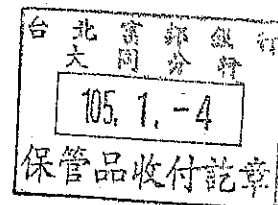 台北富邦銀行
大同分行
105. 1. -4
保管品收付訖章